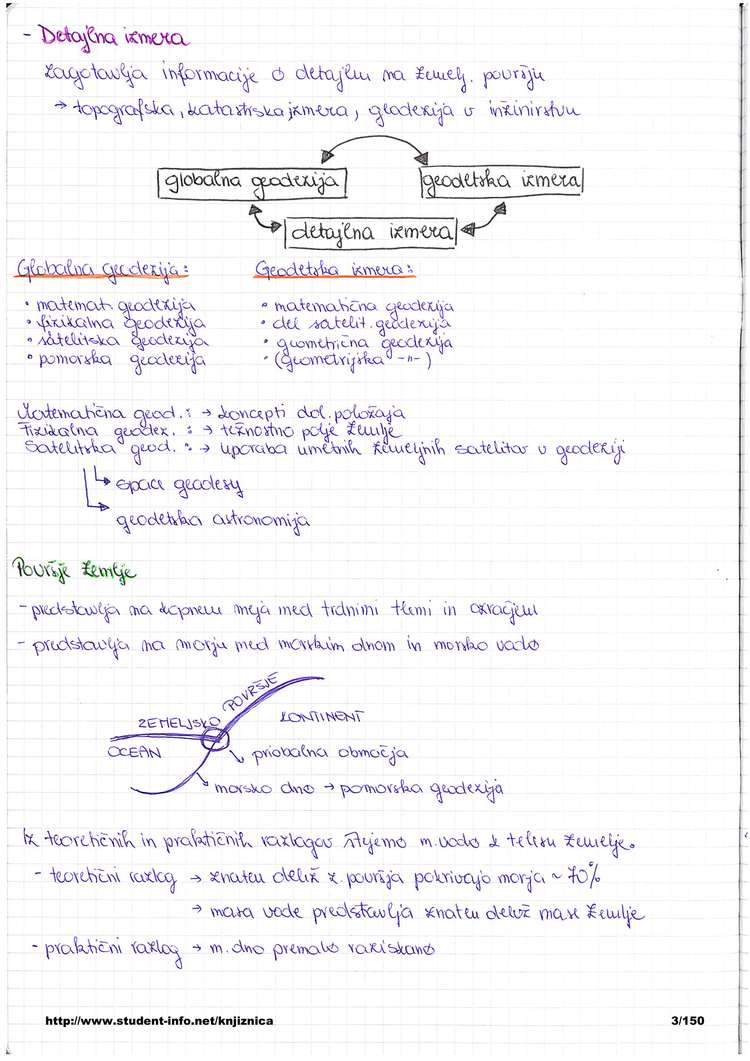 - Detajlna izmera
zagotavlja informacije o detajlu na zemelj. površju
→ topografska, katastrska izmera, geodezija v inžinirstvu
globalna geodezija
geodetska izmera
detajlna izmera
Globalna geodezija:
Geodetska izmera:
• matemat. geodezija
• fizikalna geodezija
• satelitska geodezija
• pomorska geodezija
• matematična geodezija
• del satelit. geodezija
• geometrična geodezija
• (geometrijska -n-)
Matematična geod.: → koncepti dol. položaja
Fizikalna geodez. : → težnostno polje Zemlje
Satelitska geod. : → uporaba umetnih zemeljnih satelitov v geodeziji
space geodesy
geodetska astronomija
Površje zemlje
- predstavlja na kopnem meja med trdnimi tlemi in ozračjem
- predstavlja na morju med morskim dnom in morsko vodo
ZEMELJSKO POVRŠJE
KONTINENT
OCEAN
priobalna območja
morsko dno → pomorska geodezija
Iz teoretičnih in praktičnih razlogov štejemo m. vodo k telesu zemelje.
- teoretični razlog → znaten delež z. površja pokrivajo morja ~ 70%
→ masa vode predstavlja znaten delež mase zemlje
- praktični razlog → m. dno premalo raziskano
http://www.student-info.net/knjiznica
3/150